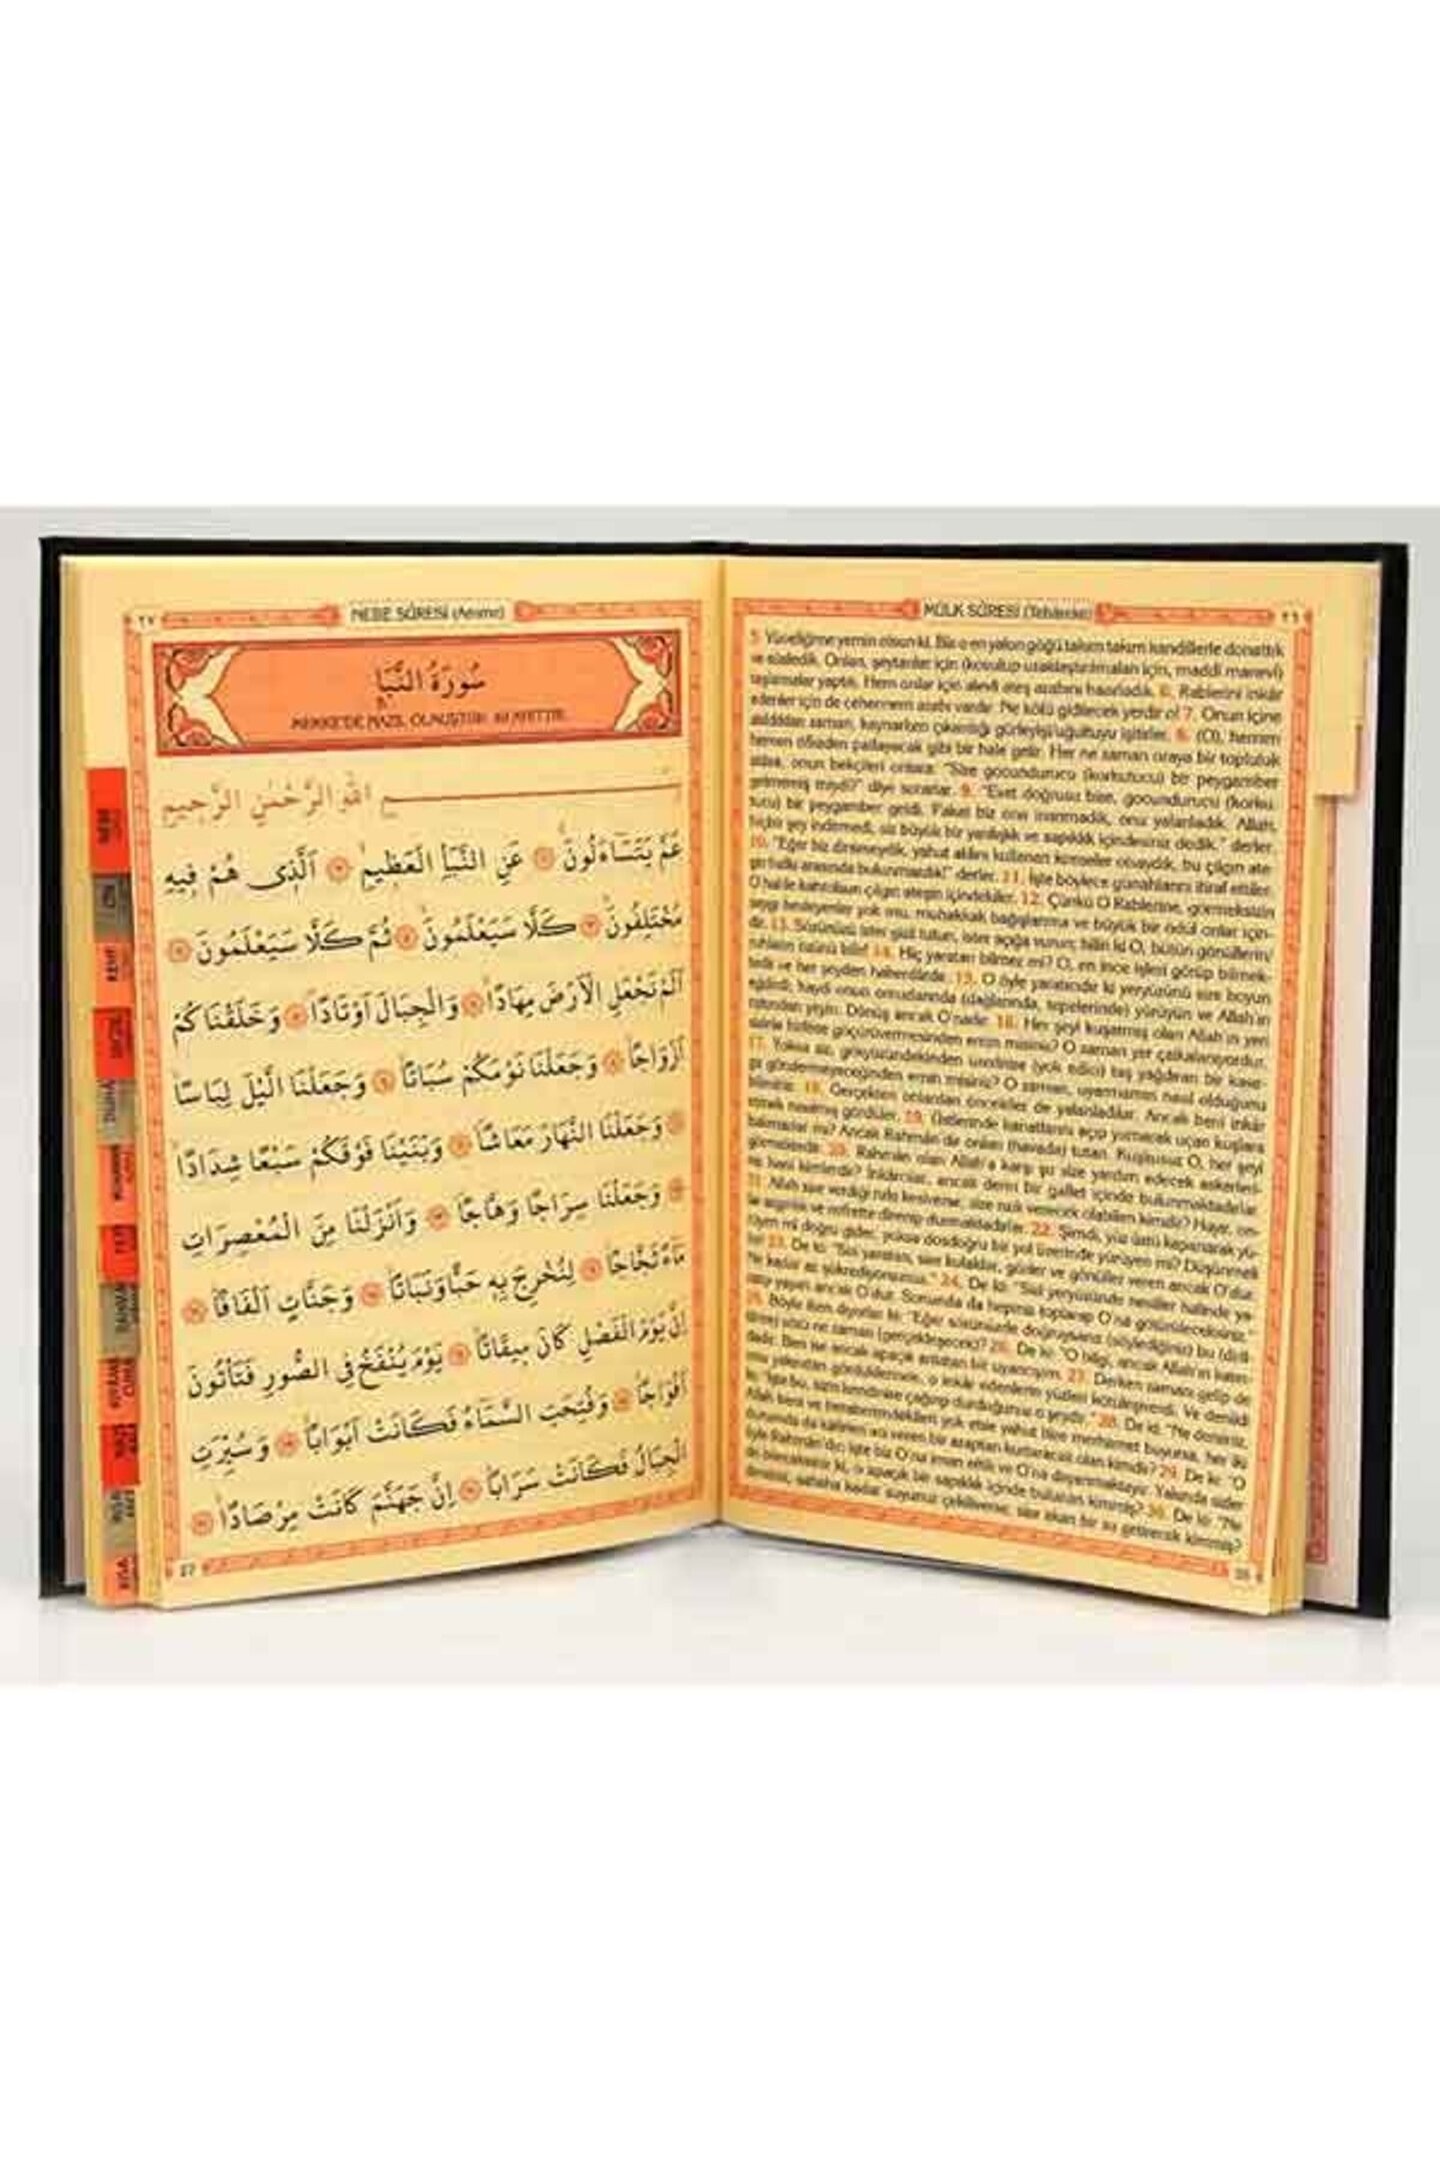 ٢٧
NEBE SÛRESİ (Amme)
سُورَةُ النَّبَأِ
MEKKE'DE NAZİL OLMUŞTUR. 40 AYETTİR.
بِسْمِ اللّٰهِ الرَّحْمٰنِ الرَّحِيمِ
عَمَّ يَتَسَاءَلُونَۚ عَنِ النَّبَأِ الْعَظِيمِۙ اَلَّذِى هُمْ فِيهِ
مُخْتَلِفُونَۜ كَلَّا سَيَعْلَمُونَۙ ثُمَّ كَلَّا سَيَعْلَمُونَ
اَلَمْ نَجْعَلِ الْاَرْضَ مِهَادًاۙ وَالْجِبَالَ اَوْتَادًاۖ وَخَلَقْنَاكُمْ
اَزْوَاجًاۙ وَجَعَلْنَا نَوْمَكُمْ سُبَاتًاۙ وَجَعَلْنَا الَّيْلَ لِبَاسًاۙ
وَجَعَلْنَا النَّهَارَ مَعَاشًاۖ وَبَنَيْنَا فَوْقَكُمْ سَبْعًا شِدَادًاۙ
وَجَعَلْنَا سِرَاجًا وَهَّاجًاۖ وَاَنْزَلْنَا مِنَ الْمُعْصِرَاتِ
مَاءً ثَجَّاجًاۙ لِنُخْرِجَ بِهِ حَبًّا وَنَبَاتًاۙ وَجَنَّاتٍ اَلْفَافًاۜ
اِنَّ يَوْمَ الْفَصْلِ كَانَ مِيقَاتًاۙ يَوْمَ يُنْفَخُ فِى الصُّورِ فَتَأْتُونَ
اَفْوَاجًاۙ وَفُتِحَتِ السَّمَاءُ فَكَانَتْ اَبْوَابًاۙ وَسُيِّرَتِ
الْجِبَالُ فَكَانَتْ سَرَابًاۜ اِنَّ جَهَنَّمَ كَانَتْ مِرْصَادًاۙ
27
MÜLK SÛRESİ (Tebâreke)
٢٦
5. Yüceliğime yemin olsun ki, Biz o en yakın göğü takım takım kandillerle donattık
ve süsledik. Onları, şeytanlar için (kovulup uzaklaştırılmaları için, maddî manevî)
taşlamalar yaptık. Hem onlar için alevli ateş azabını hazırladık. 6. Rablerini inkâr
edenler için de cehennem azabı vardır. Ne kötü gidilecek yerdir o! 7. Onun içine
atıldıkları zaman, kaynarken çıkardığı gürleyişi/uğultuyu işitirler. 8. (O), hemen
hemen öfkeden patlayacak gibi bir hale gelir. Her ne zaman oraya bir topluluk
atılsa, onun bekçileri onlara: "Size gocundurucu (korkutucu) bir peygamber
gelmemiş miydi?" diye sorarlar. 9. "Evet doğrusu bize, gocundurucu (korku-
tucu) bir peygamber geldi. Fakat biz ona inanmadık, onu yalanladık. Allah,
hiçbir şey indirmedi, siz büyük bir yanlışlık ve sapıklık içindesiniz dedik." derler.
10. "Eğer biz dinleseydik, yahut aklını kullanan kimseler olsaydık, bu çılgın ate-
şin halkı arasında bulunmazdık!" derler. 11. İşte böylece günahlarını itiraf ettiler.
O halde kahrolsun çılgın ateşin içindekiler. 12. Çünkü O Rablerine, görmeksizin
saygı besleyenler yok mu, muhakkak bağışlanma ve büyük bir ödül onlar için-
dir. 13. Sözünüzü ister gizli tutun, ister açığa vurun; bilin ki O, bütün gönüllerin/
ruhların özünü bilir! 14. Hiç yaratan bilmez mi? O, en ince işleri görüp bilmek-
tedir ve her şeyden haberdardır. 15. O öyle yaratandır ki yeryüzünü size boyun
eğdirdi; haydi onun omuzlarında (dağlarında, tepelerinde) yürüyün ve Allah'ın
rızkından yiyin. Dönüş ancak O'nadır. 16. Her şeyi kuşatmış olan Allah'ın yeri
sizinle birlikte göçürüvermesinden emin misiniz? O zaman yer çalkalanıyordur.
17. Yoksa siz, gökyüzündekinden üzerinize (yok edici) taş yağdıran bir kasır-
ga göndermeyeceğinden emin misiniz? O zaman, uyarmamın nasıl olduğunu
bilirsiniz. 18. Gerçekten onlardan öncekiler de yalanladılar. Ancak beni inkâr
etmek nasılmış gördüler. 19. Üstlerinde kanatlarını açıp yumarak uçan kuşlara
bakmazlar mı? Ancak Rahmân'dır onları (havada) tutan. Kuşkusuz O, her şeyi
görmektedir. 20. Rahmân olan Allah'a karşı şu size yardım edecek askerleri-
niz hani kimlerdir? İnkârcılar, ancak derin bir gaflet içinde bulunmaktadırlar.
21. Allah size verdiği rızkı kesiverse, size rızık verecek olabilen kimdir? Hayır, on-
lar azgınlık ve nefrette direnip durmaktadırlar. 22. Şimdi, yüz üstü kapanarak yü-
rüyen mi doğru gider, yoksa dosdoğru bir yol üzerinde yürüyen mi? Düşünmek
23. De ki: "Sizi yaratan, size kulaklar, gözler ve gönüller veren ancak O'dur.
Ne kadar az şükrediyorsunuz." 24. De ki: "Sizi yeryüzünde nesiller halinde ya-
ratıp yayan ancak O'dur. Sonunda da hepiniz toplanıp O'na götürüleceksiniz."
25. Böyle iken diyorlar ki: "Eğer sözünüzde doğruysanız (söylediğiniz) bu (diril-
ne zaman (gerçekleşecek)? 26. De ki: "O bilgi, ancak Allah'ın katın-
dadır. Ben ise ancak apaçık anlatan bir uyarıcıyım. 27. Derken zamanı gelip de
onu yakından gördüklerinde, o inkâr edenlerin yüzleri kötüleşiverdi. Ve denildi
ki: "İşte bu, sizin kendinize çağırıp durduğunuz o şeydir." 28. De ki: "Ne dersiniz,
Allah beni ve beraberimdekileri yok etse yahut bize merhamet buyursa, her iki
durumda da kâfirleri acı veren bir azaptan kurtaracak olan kimdir? 29. De ki: "O
öyle Rahmân'dır; işte biz O'na iman ettik ve O'na dayanmaktayız. Yakında sizler
de bileceksiniz ki, o apaçık bir sapıklık içinde bulunan kimmiş? 30. De ki: "Ne
dersiniz, sabaha kadar suyunuz çekiliverse, size akan bir su getirecek kimmiş?